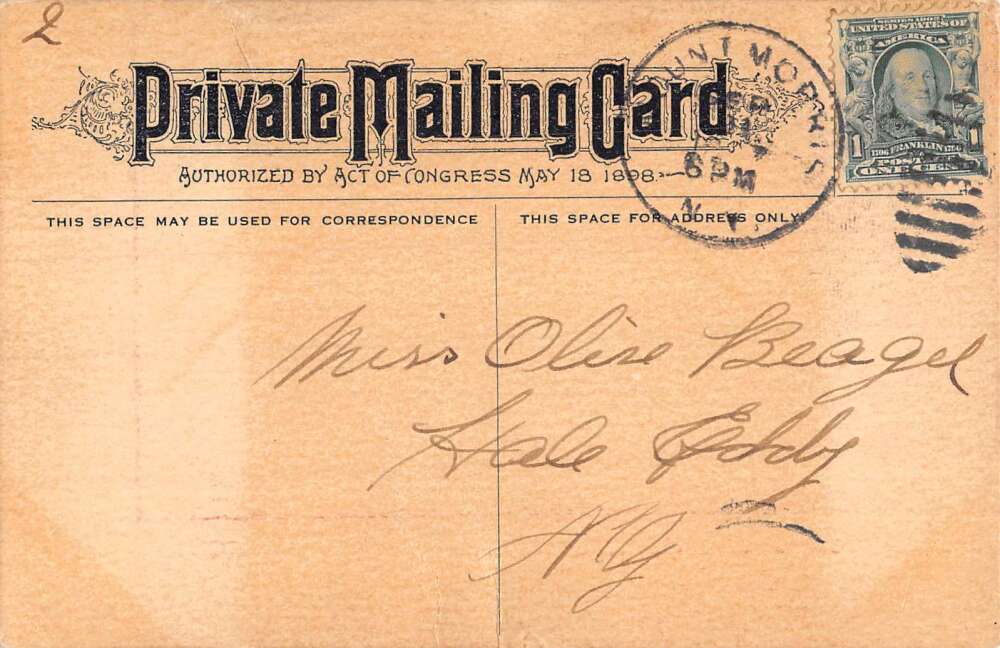 2
Private Mailing Card
AUTHORIZED BY ACT OF CONGRESS MAY 18 1898
MOUNT MORRIS
6 PM
N.Y.
SERIES 1902
UNITED STATES OF
AMERICA
1 1706 FRANKLIN 1790 1
POSTAGE
ONE CENT
THIS SPACE MAY BE USED FOR CORRESPONDENCE
THIS SPACE FOR ADDRESS ONLY
Miss Olive Beagel
Hale Eddy
NY